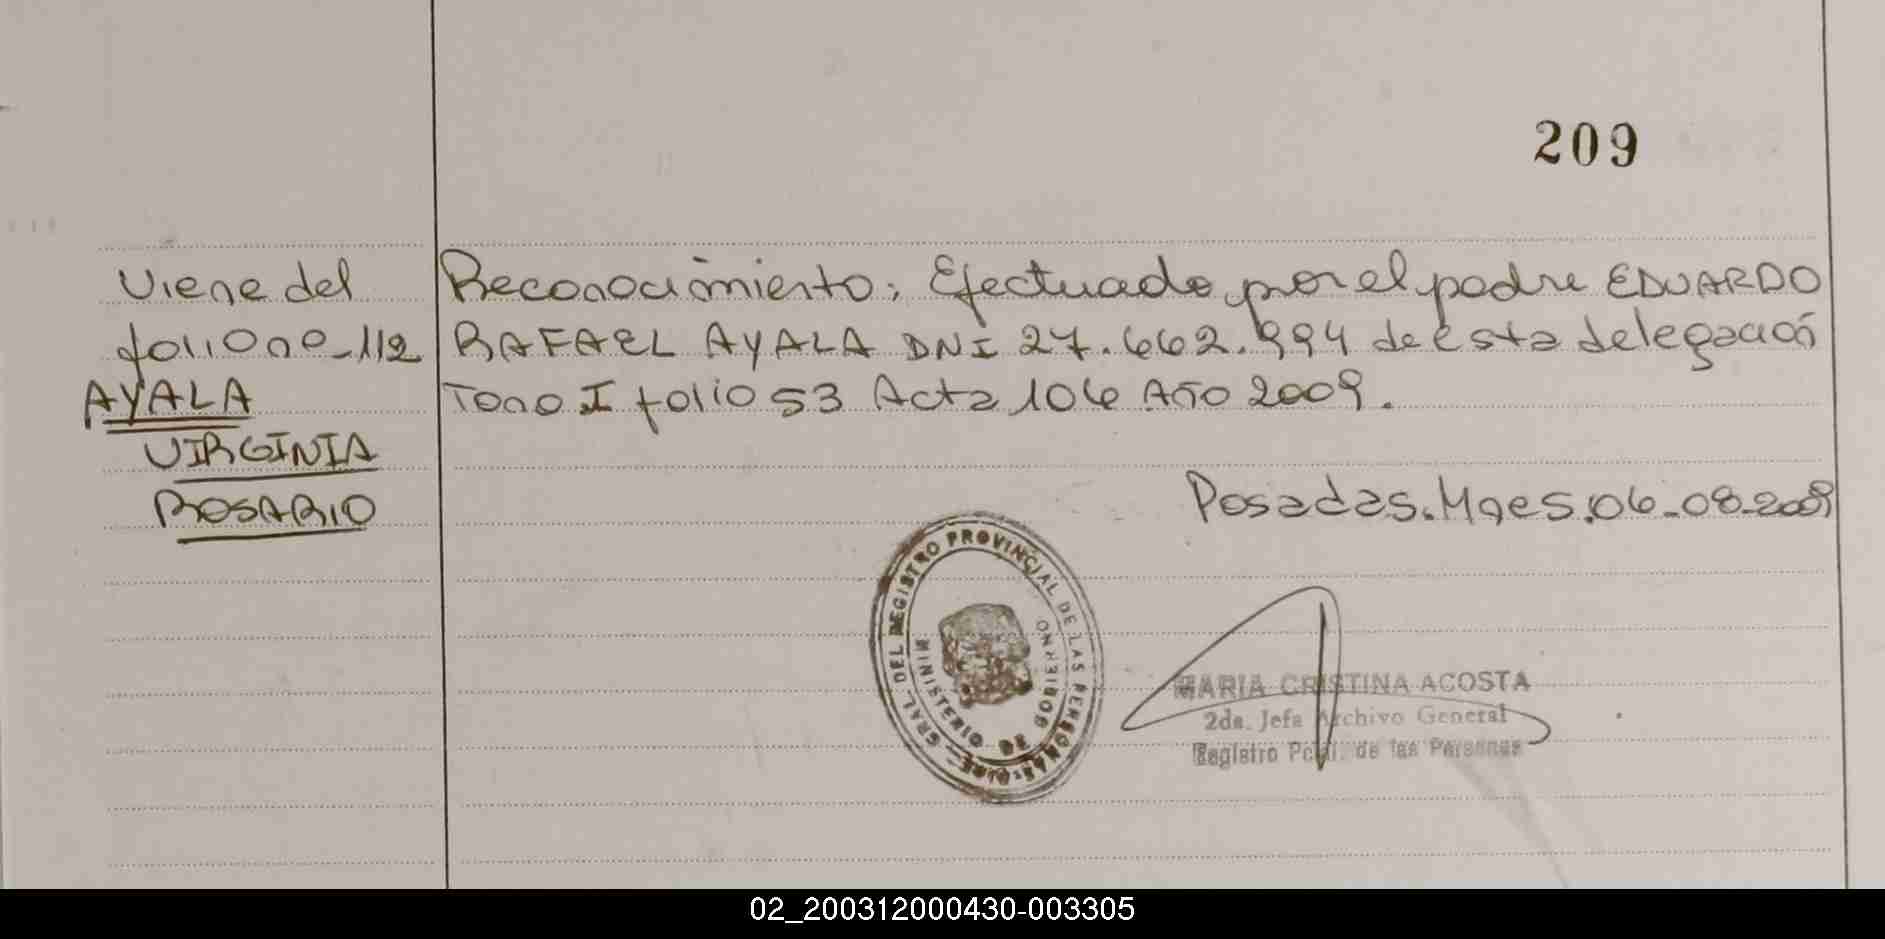 209
Viene del
folio no_112
AYALA
VIRGINIA
ROSARIO
Reconocimiento; Efectuado por el padre EDUARDO
RAFAEL AYALA DNI 27.662.994 de esta delegación
Tomo I folio 53 Acta 106 Año 2009.
Posadas.Mnes.06-08-2009
GRAL. DEL REGISTRO PROVINCIAL DE LAS PERSONAS-DIRE
MINISTERIO DE GOBIERNO
MARIA CRISTINA ACOSTA
2da. Jefa Archivo General
Registro Pcial. de las Personas
02_200312000430-003305